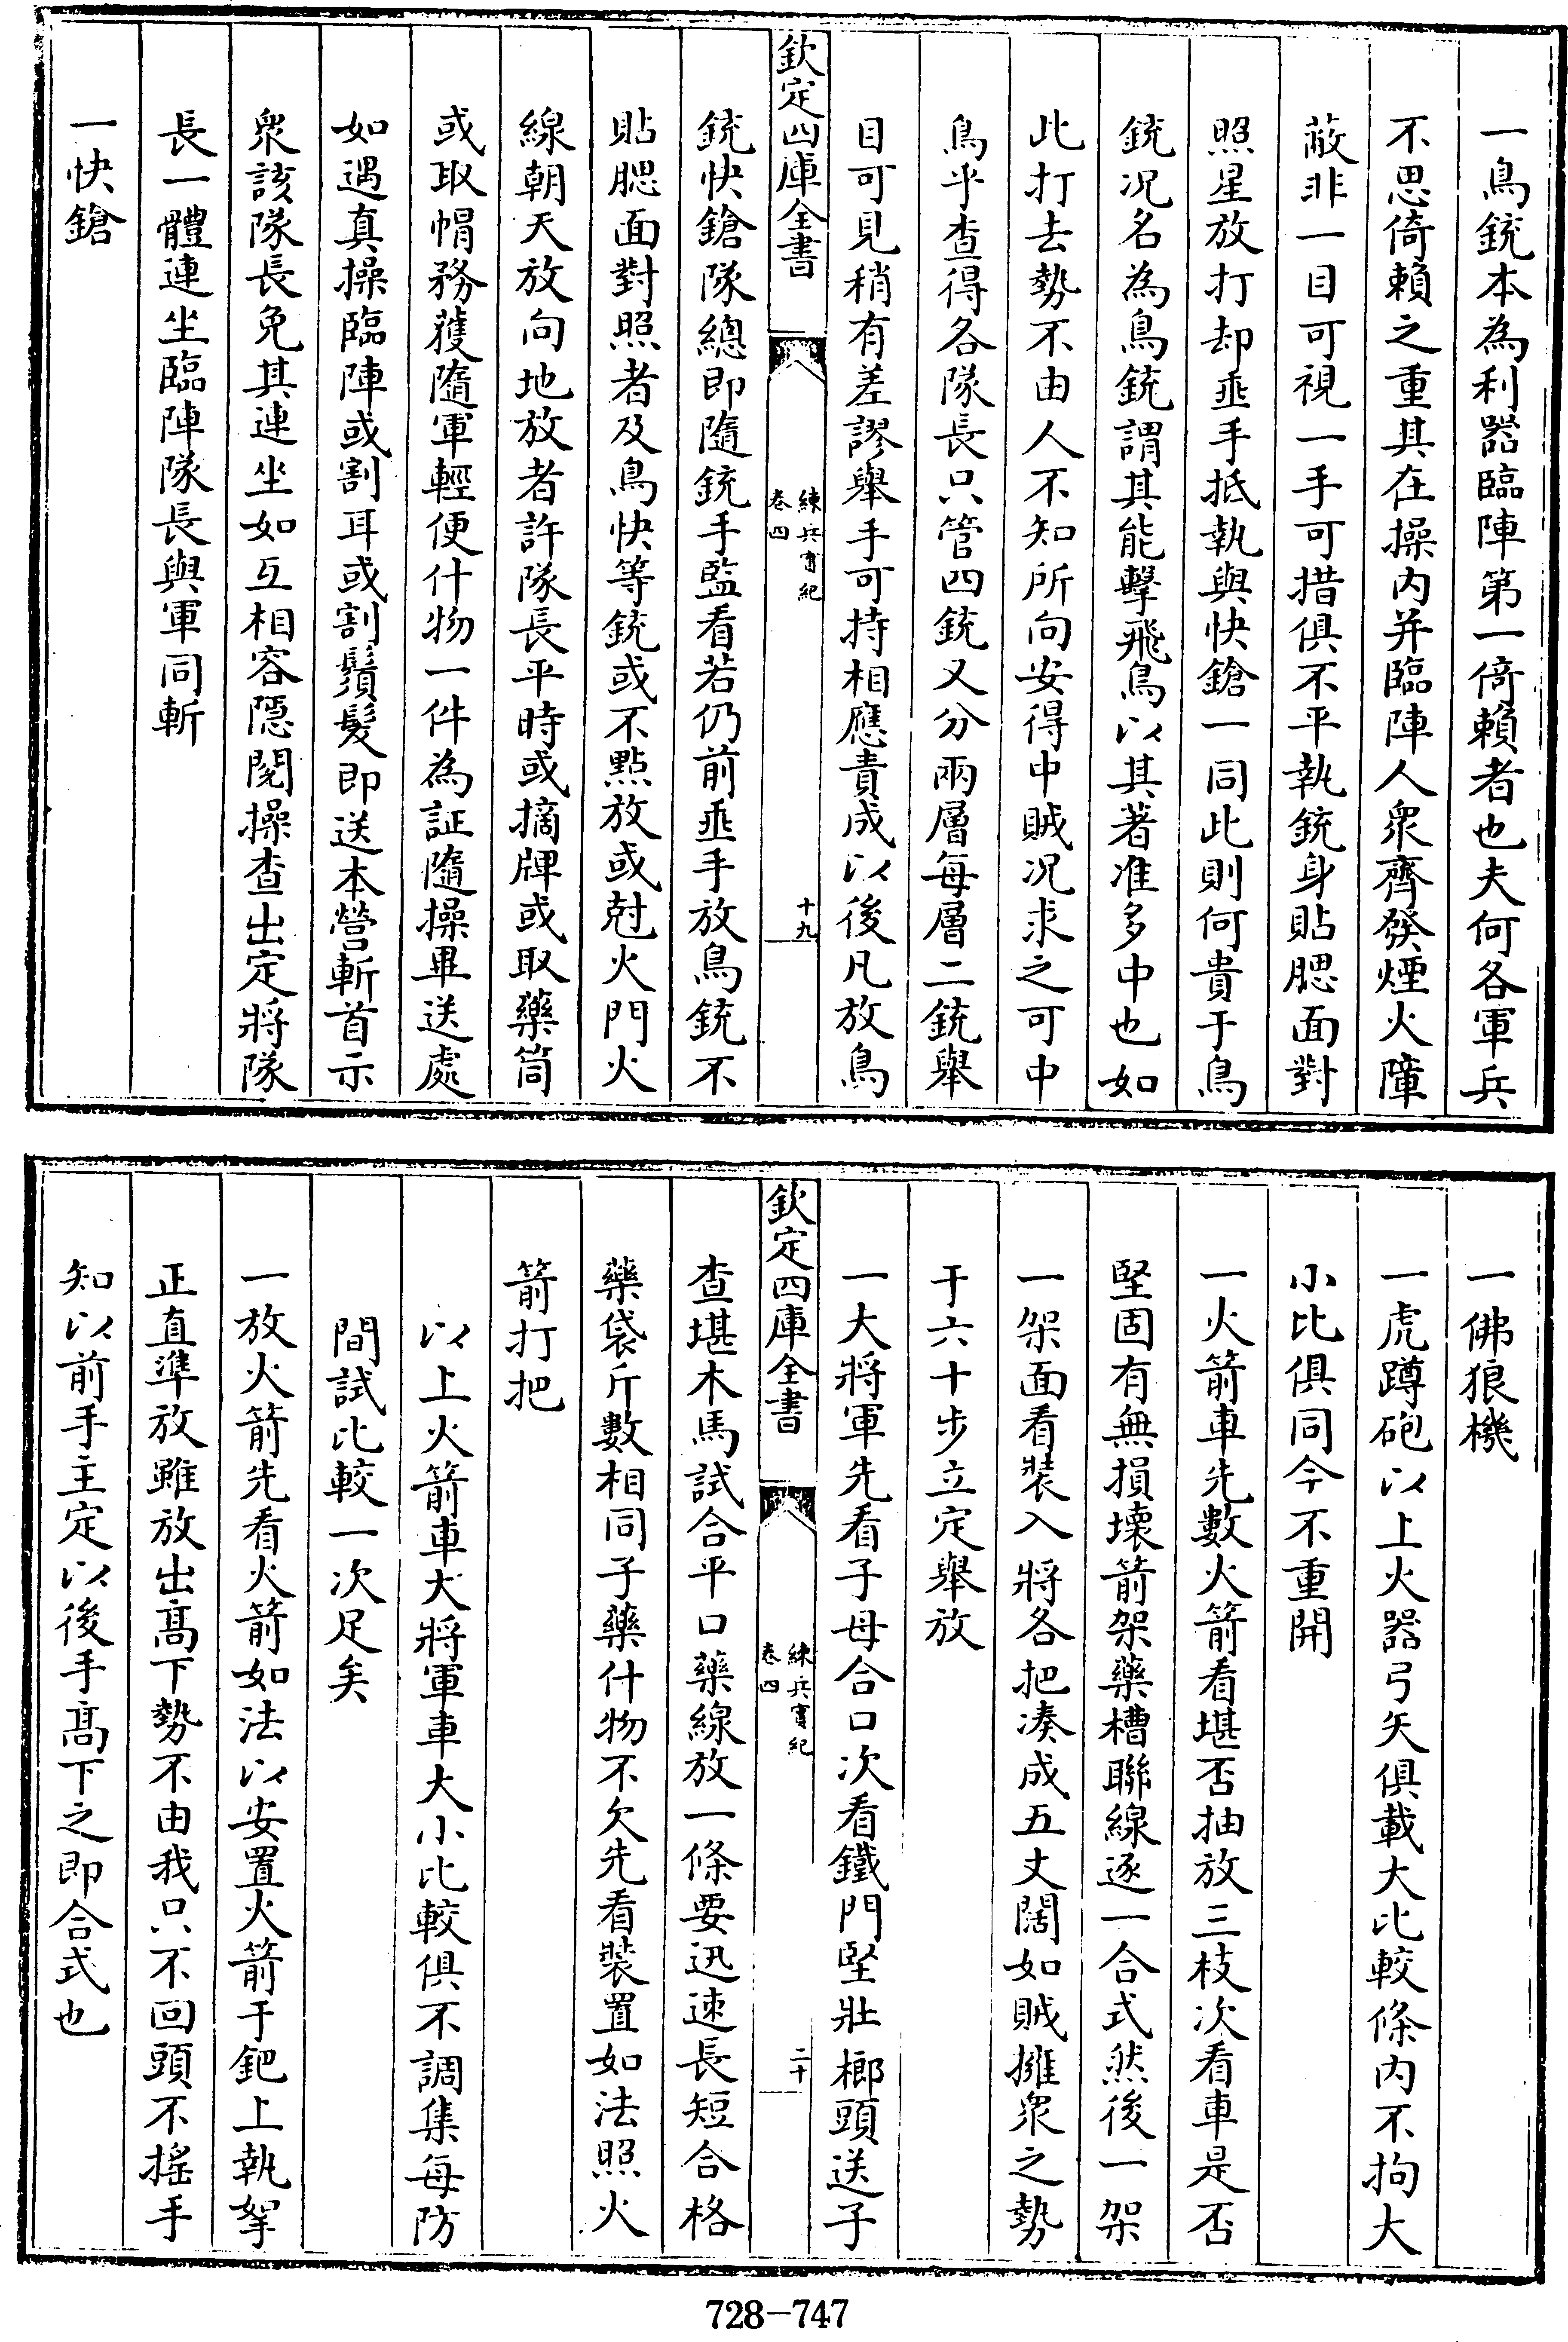 一鳥銃本為利器臨陣第一倚賴者也夫何各軍兵
不思倚賴之重其在操内并臨陣人衆齊發煙火障
蔽非一目可視一手可措俱不平執銃身貼腮面對
照星放打却垂手抵執與快鎗一同此則何貴于鳥
銃况名為鳥銃謂其能擊飛鳥以其著准多中也如
此打去勢不由人不知所向安得中賊况求之可中
鳥乎查得各隊長只管四銃又分兩層每層二銃舉
目可見稍有差謬舉手可持相應責成以後凡放鳥
欽定四庫全書
練兵實紀
卷四
十九
銃快鎗隊總即隨銃手監看若仍前垂手放鳥銃不
貼腮面對照者及鳥快等銃或不點放或尅火門火
線朝天放向地放者許隊長平時或摘牌或取藥筒
或取帽務獲隨軍輕便什物一件為証隨操畢送處
如遇真操臨陣或割耳或割鬚髮即送本營斬首示
衆該隊長免其連坐如互相容隱閱操查出定將隊
長一體連坐臨陣隊長與軍同斬
一快鎗
一佛狼機
一虎蹲砲以上火器弓矢俱載大比較條内不拘大
小比俱同今不重開
一火箭車先數火箭看堪否抽放三枝次看車是否
堅固有無損壞箭架藥槽聯線逐一合式然後一架
一架面看裝入將各把凑成五丈闊如賊擁衆之勢
于六十步立定舉放
一大將軍先看子母合口次看鐵門堅壯榔頭送子
欽定四庫全書
練兵實紀
卷四
二十
查堪木馬試合平口藥線放一條要迅速長短合格
藥袋斤數相同子藥什物不欠先看裝置如法照火
箭打把
以上火箭車大將軍車大小比較俱不調集每防
間試比較一次足矣
一放火箭先看火箭如法以安置火箭于鈀上執拏
正直準放雖放出高下勢不由我只不回頭不摇手
知以前手主定以後手高下之即合式也
728-747